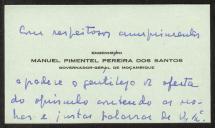 Com respeitosos cumprimentos
ENGENHEIRO
MANUEL PIMENTEL PEREIRA DOS SANTOS
GOVERNADOR-GERAL DE MOÇAMBIQUE
agradece a gentileza da oferta
do opúsculo contendo as
e justas palavras de V. Exª